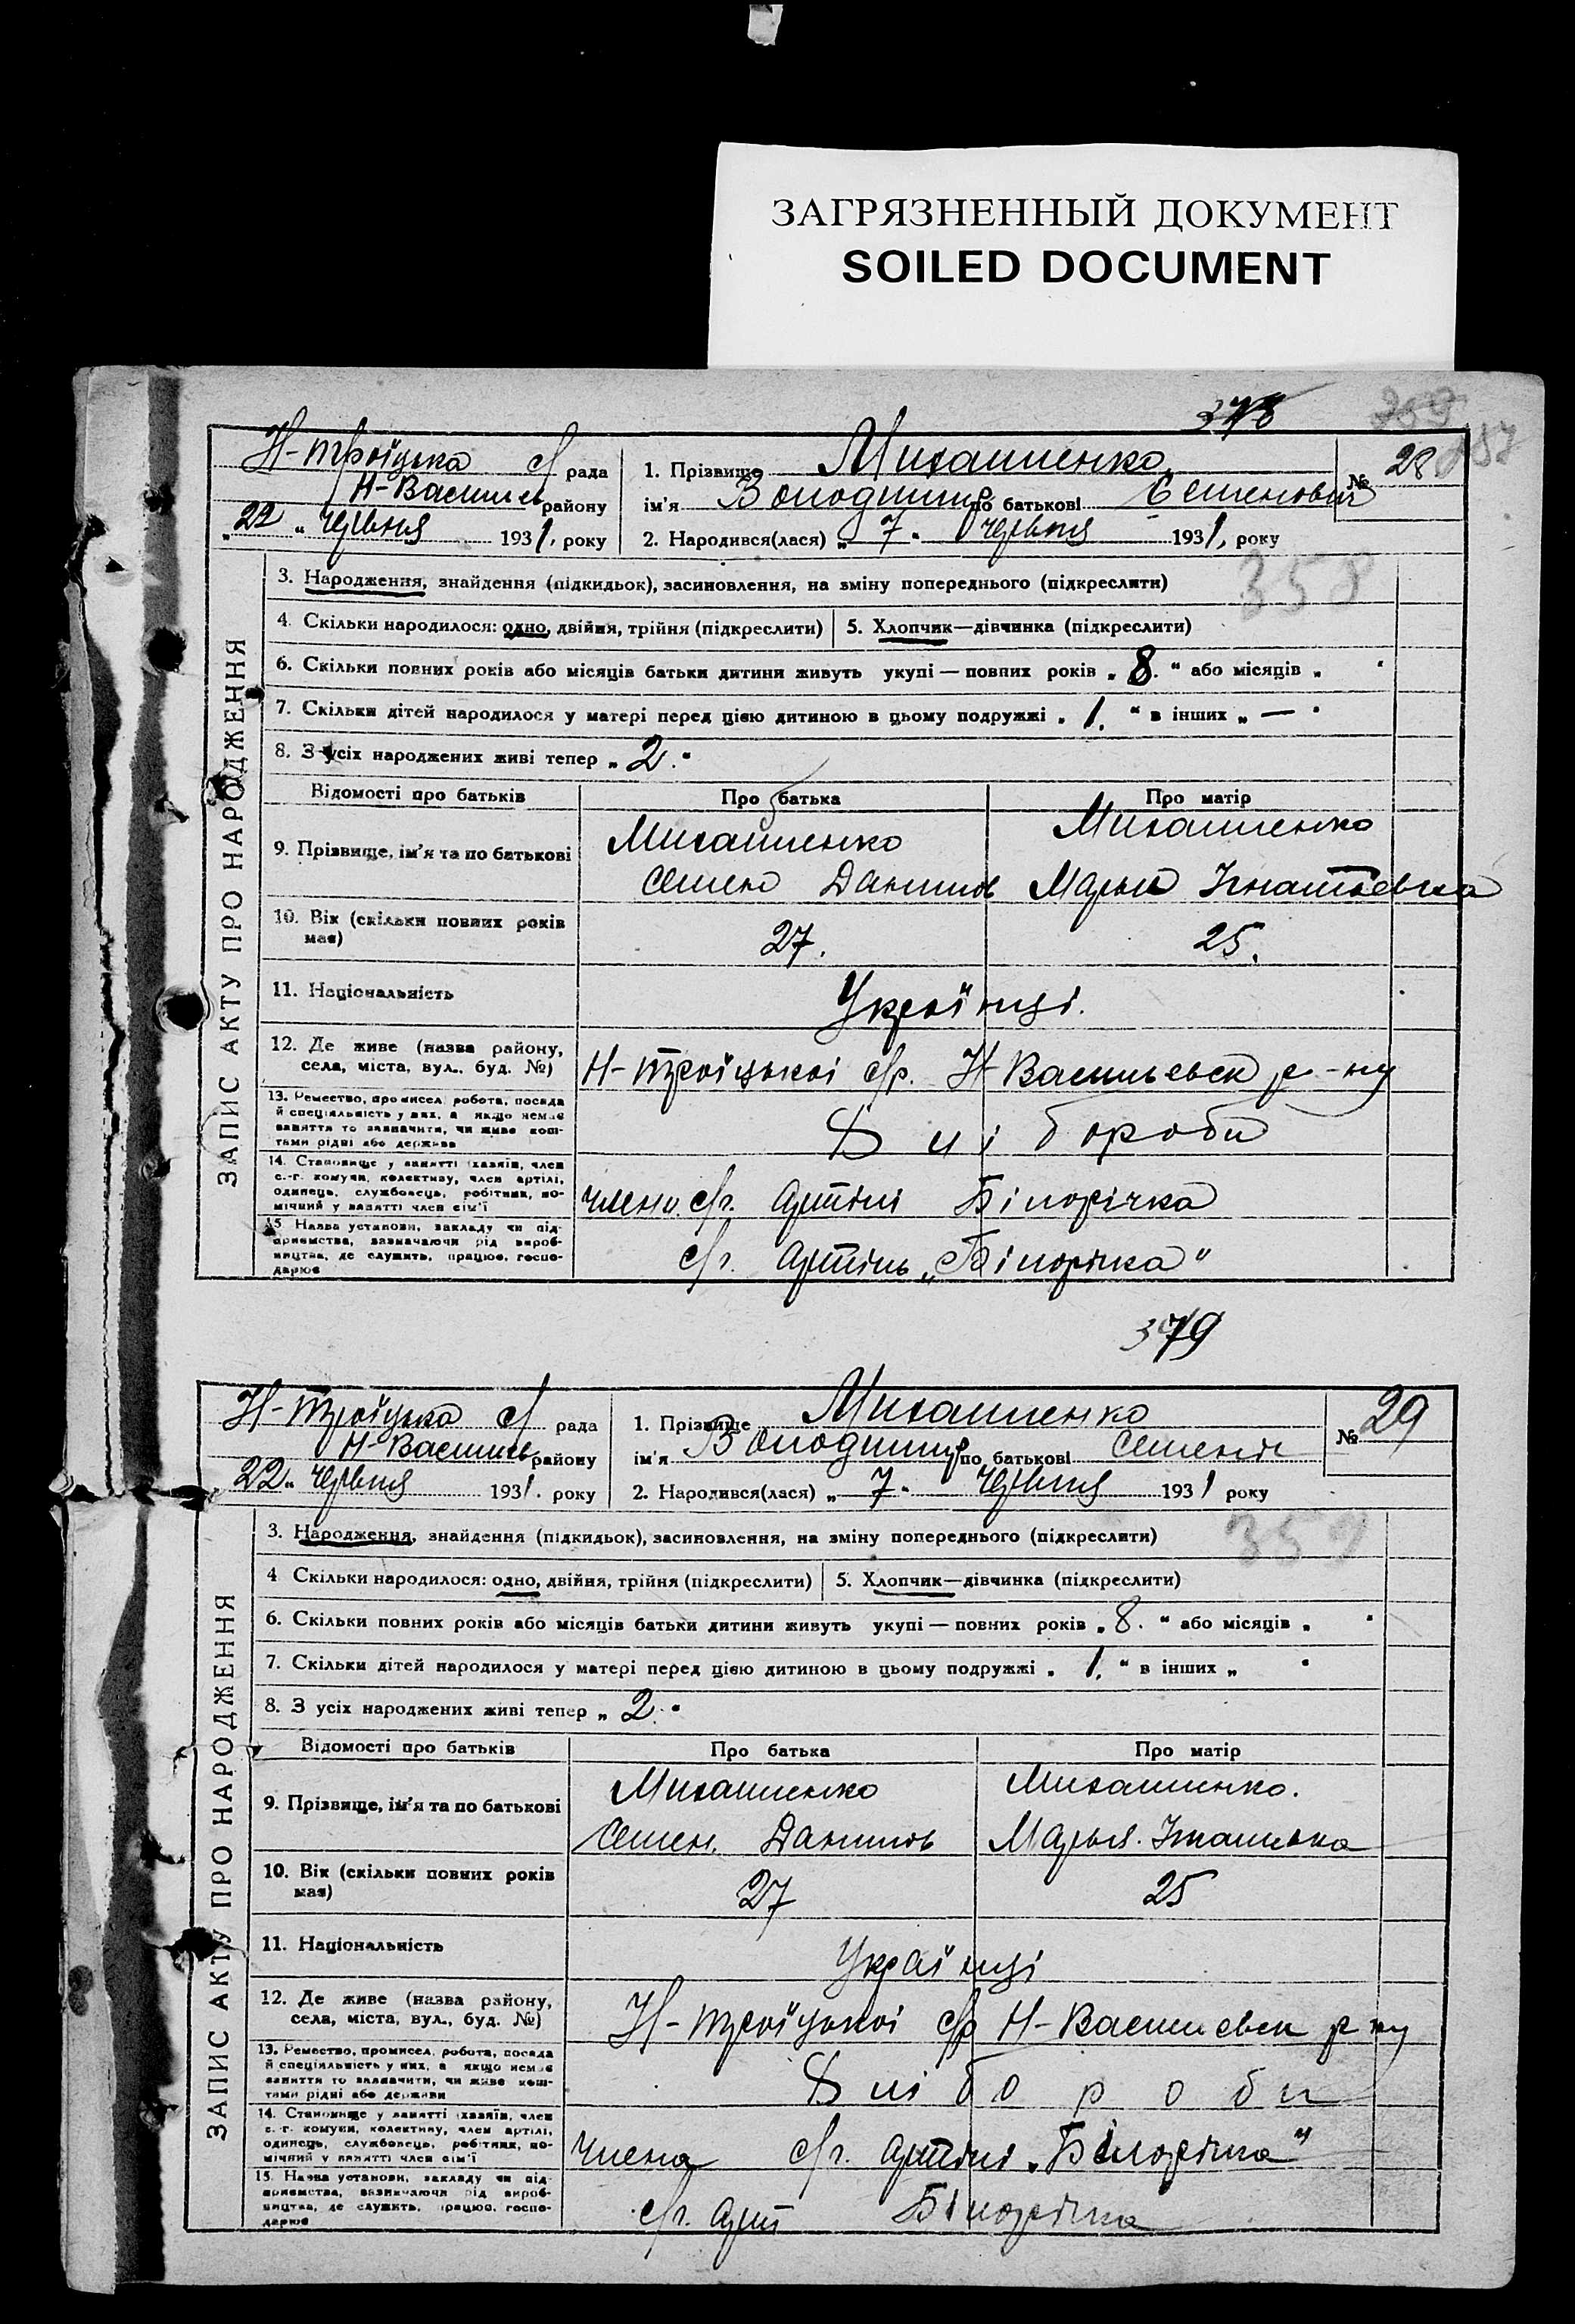 ЗАГРЯЗНЕННЫЙ ДОКУМЕНТ
SOILED DOCUMENT
378
359
287
Н-Троїцька с/ рада
Н-Василів району
„22" червня 1931, року
1. Прізвище Михашенко
ім'я Володимир по батькові Семенович
№ 28
2. Народився(лася) „7" червня 1931, року
358
ЗАПИС АКТУ ПРО НАРОДЖЕННЯ
3. Народження, знайдення (підкидьок), засиновлення, на зміну попереднього (підкреслити)
4. Скільки народилося: одно, двійня, трійня (підкреслити) 5. Хлопчик—дівчинка (підкреслити)
6. Скільки повних років або місяців батьки дитини живуть укупі — повних років „8." або місяців „ "
7. Скільки дітей народилося у матері перед цією дитиною в цьому подружжі „1." в інших „—"
8. З усіх народжених живі тепер „2."
Відомості про батьків Про батька Про матір
9. Прізвище, ім'я та по батькові
Михашенко Михашенко
Семен Данилов Марья Ігнатьевна
10. Вік (скільки повних років має) 27. 25.
11. Національність Українці.
12. Де живе (назва району, села, міста, вул., буд. №)
Н-Троїцької с/р. Н-Васильевск р-ну
13. Ремество, промисел, робота, посада
й спеціяльність у них, а якщо немає
заняття то зазначити, чи живе кош-
тами рідні або держави
Хліборобы
14. Становище у занятті (хазяїн, член
с.-г. комуни, колективу, член артілі,
одинець, службовець, робітник, по-
мічний у занятті член сім'ї
члени с/г. Артілі Білорічка
15. Назва установи, закладу чи під-
приємства, зазначаючи рід вироб-
ництва, де служить, працює, госпо-
дарює
с/г. Артіль „Білорічка"
379
Н-Троїцька с/ рада
Н-Василів району
22" червня 1931. року
1. Прізвище Михашенко
ім'я Володимир по батькові Семенів
№ 29
2. Народився(лася) „7" червня 1931 року
359
ЗАПИС АКТУ ПРО НАРОДЖЕННЯ
3. Народження, знайдення (підкидьок), засиновлення, на зміну попереднього (підкреслити)
4 Скільки народилося: одно, двійня, трійня (підкреслити) 5. Хлопчик—дівчинка (підкреслити)
6. Скільки повних років або місяців батьки дитини живуть укупі — повних років „8." або місяців „ "
7. Скільки дітей народилося у матері перед цією дитиною в цьому подружжі „1." в інших „ "
8. З усіх народжених живі тепер „2."
Відомості про батьків Про батька Про матір
9. Прізвище, ім'я та по батькові
Михашенко Михашенко.
Семен. Данилов Марья.
10. Вік (скільки повних років має) 27 25
11. Національність Українці
12. Де живе (назва району, села, міста, вул., буд. №)
Н-Троїцької с/р Н-Васильевск р ну
13. Ремество, промисел, робота, посада
й спеціяльність у них, а якщо немає
заняття то зазначити, чи живе кош-
тами рідні або держави
Хлібороби
14. Становище у занятті (хазяїн, член
с.-г. комуни, колективу, член артілі,
одинець, службовець, робітник, по-
мічний у занятті член сім'ї
члена с/г. Артілі „Білорічка"
15. Назва установи, закладу чи під-
приємства, зазначаючи рід вироб-
ництва, де служить, працює, госпо-
дарює
с/г. Арт Білорічка